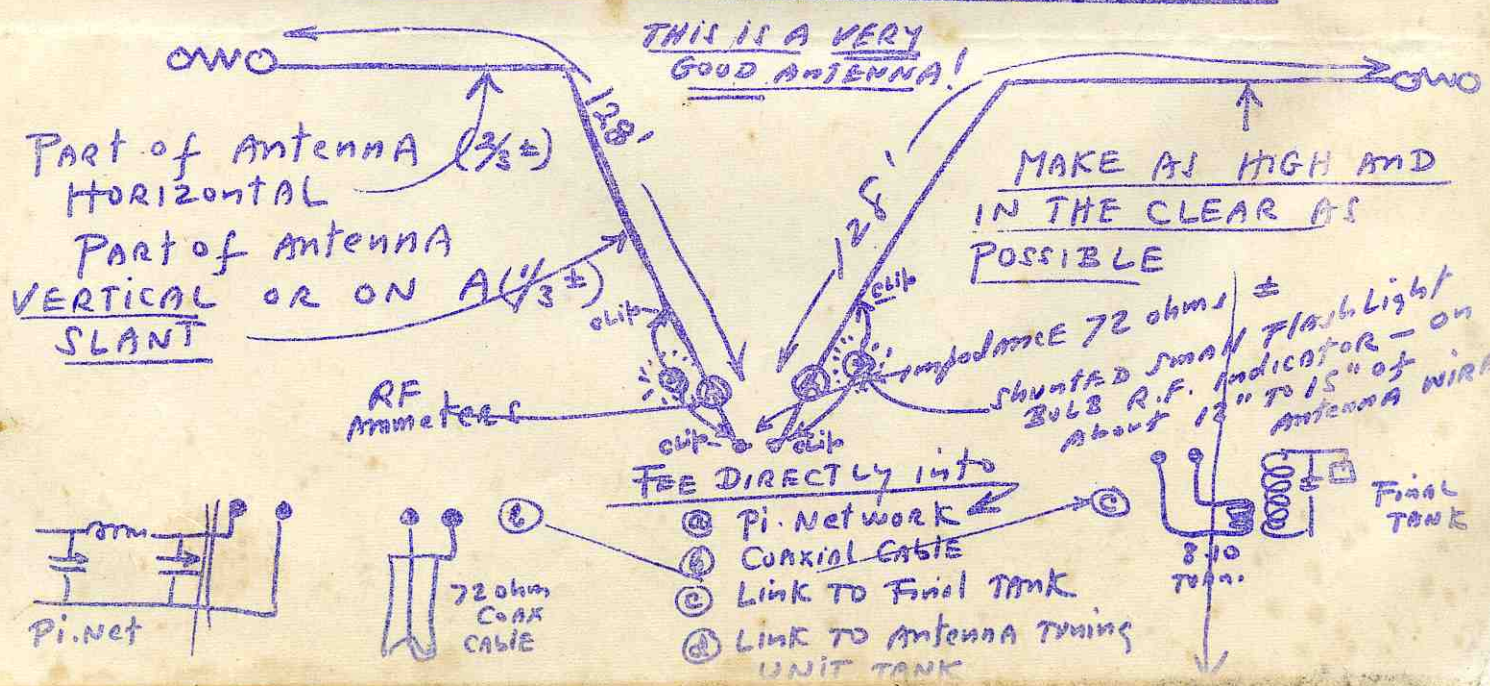 THIS IS A VERY
GOOD ANTENNA!
128'
128'
PART of ANTENNA (2/3 ±)
HORIZONTAL
PART of ANTENNA
VERTICAL OR ON A (1/3 ±)
SLANT
MAKE AS HIGH AND
IN THE CLEAR AS
POSSIBLE
clip
clip
impedance 72 ohms ±
shunted small Flash Light
BULB R.F. indicator - on
About 12" TO 15" of
Antenna wire
RF
Ammeters
clip
clip
FEE DIRECTLY into
(a) Pi. Network
(b) COAXIAL CABLE
(c) LINK TO Final TANK
(d) LINK TO Antenna Tuning
UNIT TANK
Pi. Net
(b)
72 ohm
COAX
CABLE
(c)
8-10
TURN.
FINAL
TANK